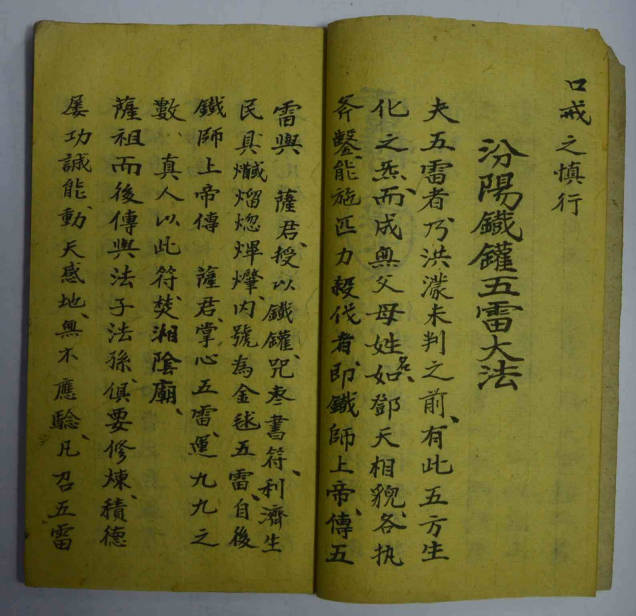 口戒之慎行
汾陽鐵鑵五雷大法
夫五雷者乃洪濛未判之前、有此五方生
化之炁、而成無父母姓名、如鄧天相貌、各执
斧鑿、能施匹力殺伐者、即鐵師上帝、傳五
雷與 薩君、授以鐵鑵、咒枣書符、利濟生
民具熌熠煾熚㸅、内號為金毬五雷、自後
鐵師上帝傳 薩君、掌心五雷、運九九之
數、真人以此符焚湘陰廟、
薩祖而後傳與法子法孫、俱要修煉、積德
屡功誠能、動天感地、無不應驗、凡召五雷